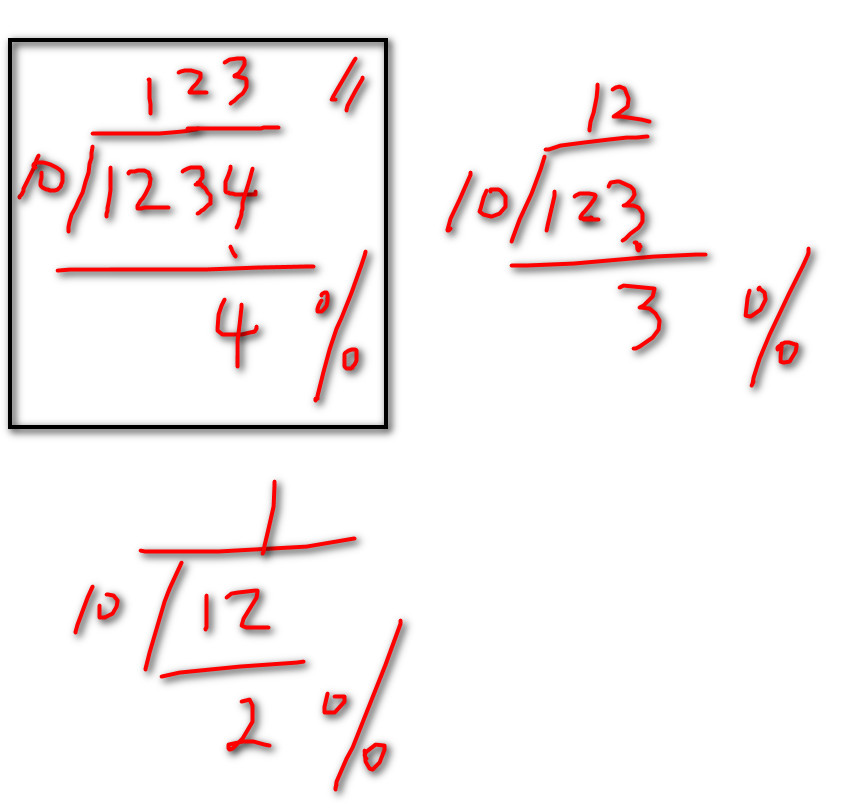 123 //
10 1234
4 %
12
10 123
3 %
1
10 12
2 %